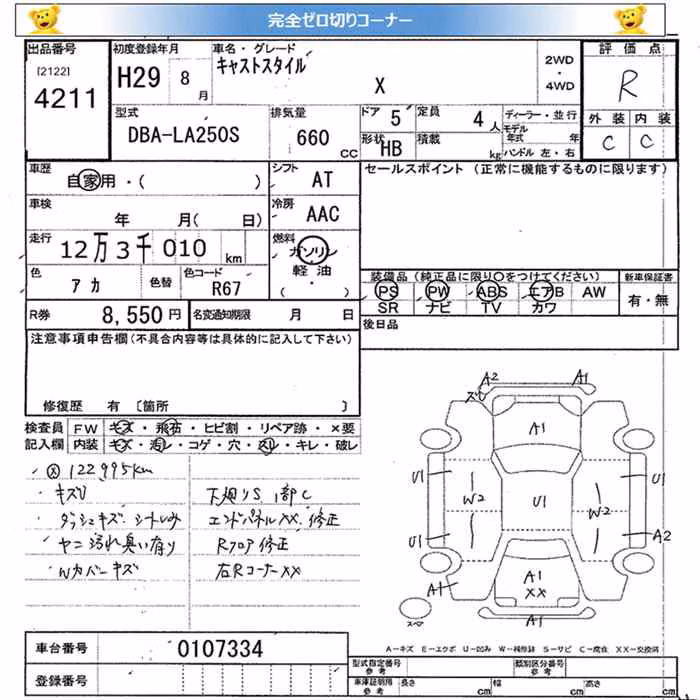 完全ゼロ切りコーナー
出品番号
[2122]
4211
初度登録年月
H29 8 月
車名・グレード
キャストスタイル
X
2WD
・
4WD
評価点
R
型式
DBA-LA250S
排気量
660 CC
ドア 5
定員 4 人
形状 HB
積載 kg
ディーラー・並行
モデル年式 年
ハンドル 左・右
外装 内装
C C
車歴
自家用・( )
シフト AT
セールスポイント (正常に機能するものに限ります)
車検
年 月( 日)
冷房 AAC
走行
12万3千010 km
燃料
ガソリン
軽油
( ・ )
色 アカ
色替
色コード R67
装備品 (純正品に限り〇をつけてください)
PS PW ABS エアB AW
SR ナビ TV カワ
新車保証書
有・無
R券 8,550 円
名変通知期限 月 日
後日品
注意事項申告欄(不具合内容等は具体的に記入して下さい)
修復歴 有 〔箇所 〕
検査員
記入欄
FW キズ・飛石・ヒビ割・リペア跡・×要
内装 キズ・汚レ・コゲ・穴・スリ・キレ・破レ
122995km
キズU
ダッシュキズ. シートしみ
ヤニ汚れ臭い有り
Wカバーキズ
下廻りS 1部C
エンドパネルXX. 修正
Rフロア修正
右RコーナーXX
A2
A1
ズレ
A1
U1
W2
U1
W2
U1
U1
A2
A1
A1
XX
A1
A-キズ E-エクボ U-凹み W-補修跡 S-サビ C-腐食 XX-交換済
車台番号 0107334
登録番号
型式指定番号
参考
類別区分番号
参考
車庫証明用
参考
長さ cm
幅 cm
高さ cm